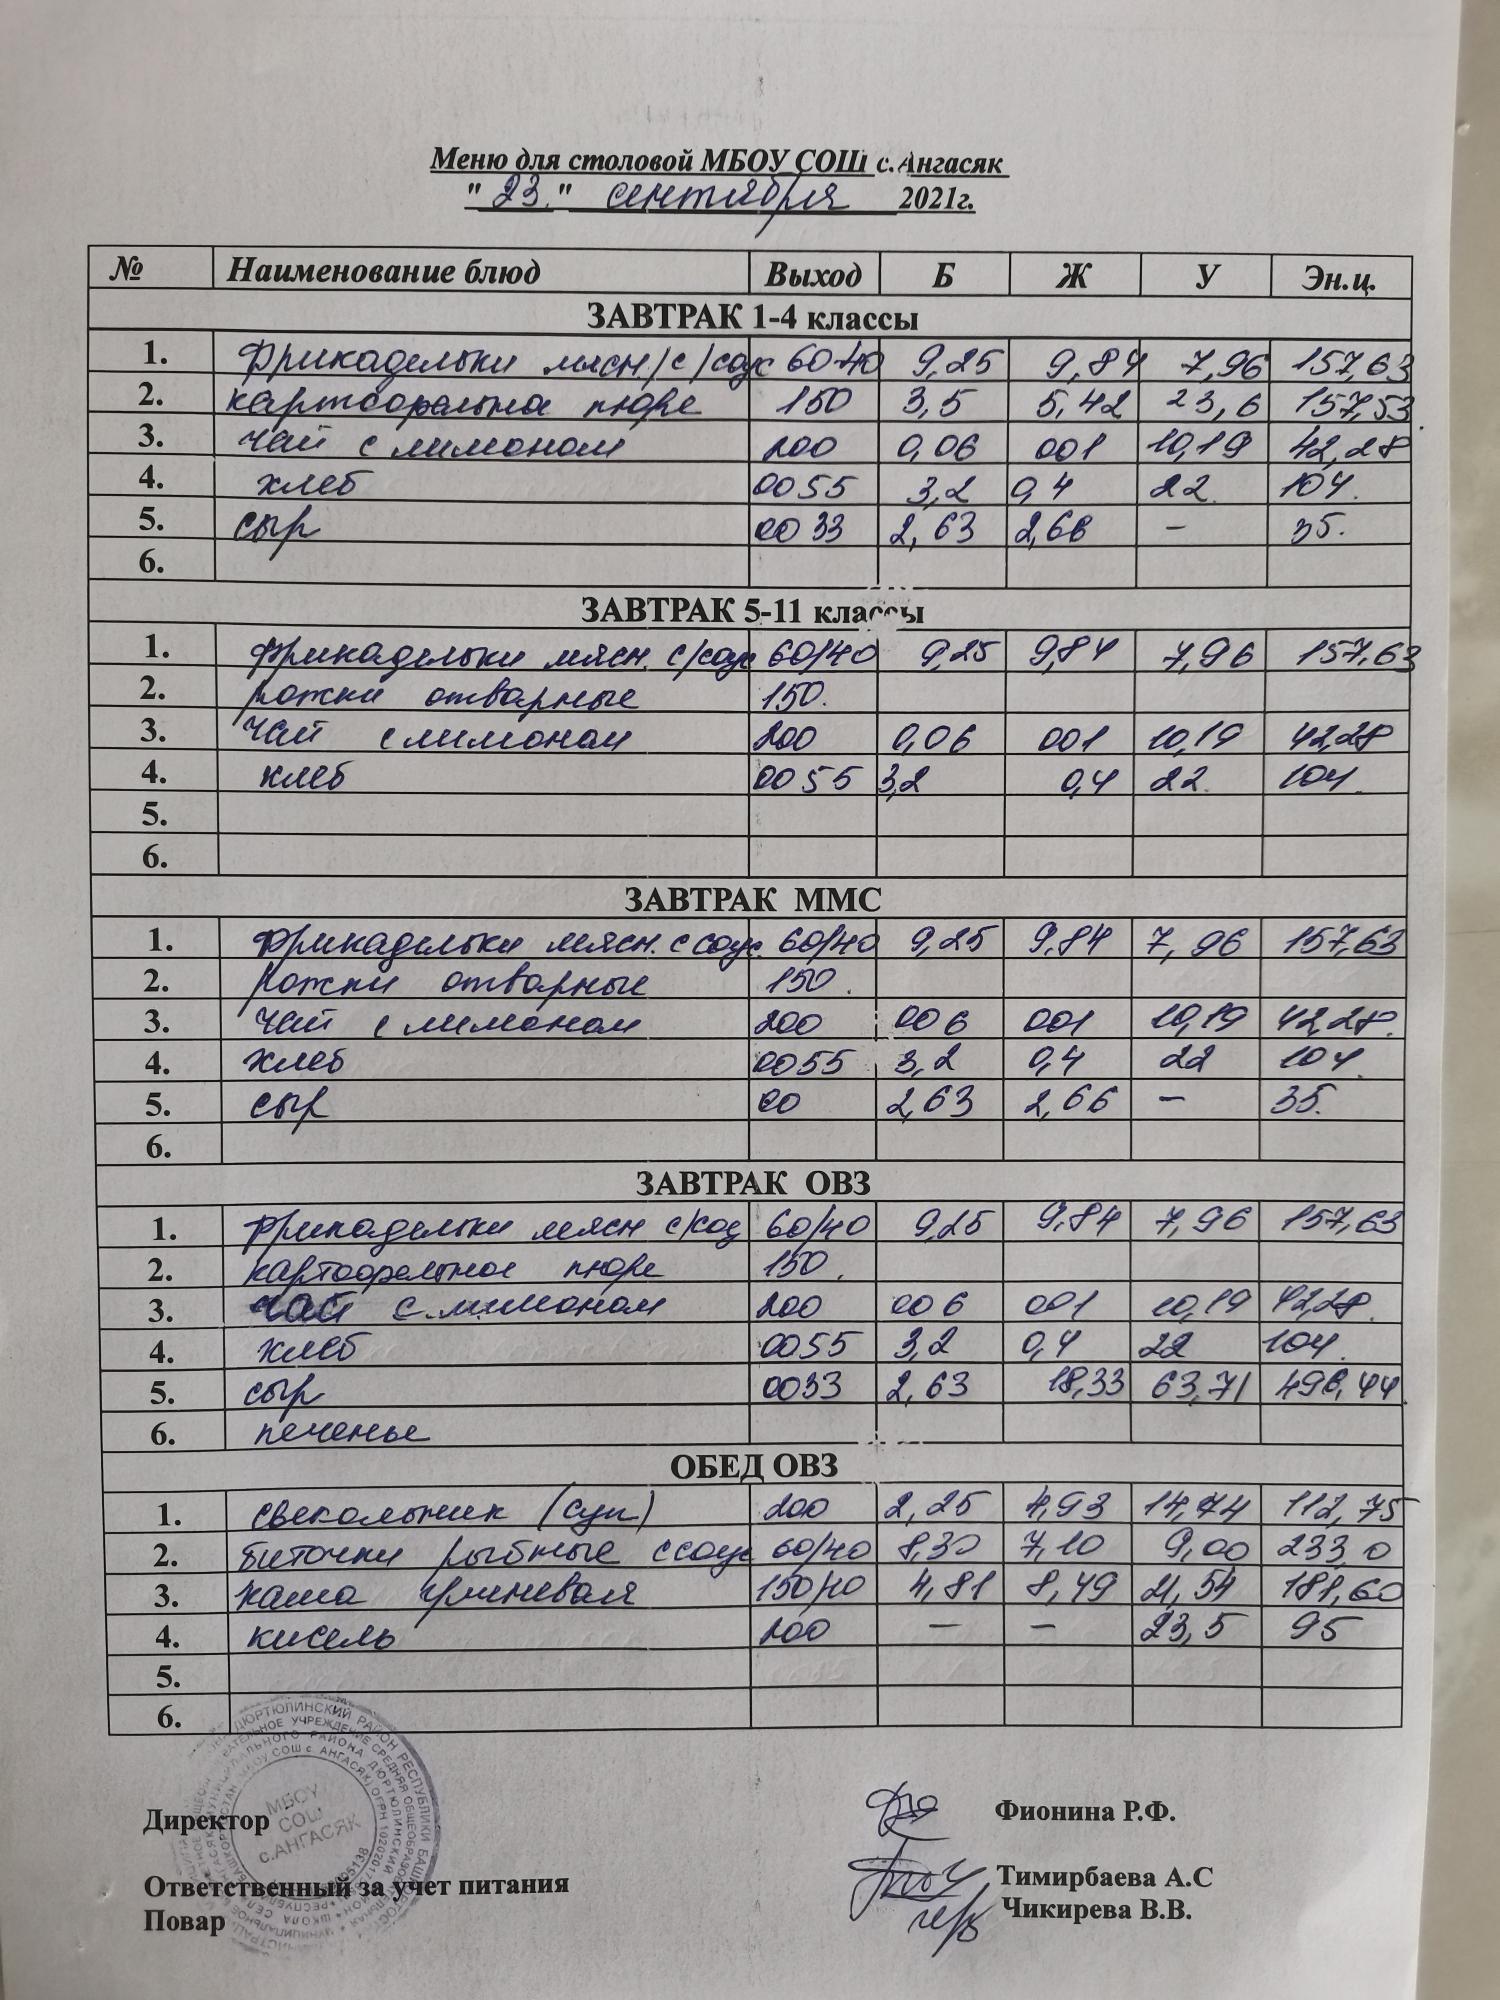 Меню для столовой МБОУ СОШ с.Ангасяк
"23." сентября 2021г.
№ Наименование блюд Выход Б Ж У Эн.ц.
ЗАВТРАК 1-4 классы
1. фрикадельки мясн/с/соус 60-40 9,25 9,84 7,96 157,63
2. картофельное пюре 150 3,5 5,42 23,6 157,53
3. чай с лимоном 200 0,06 001 10,19 42,28
4. хлеб 0055 3,2 0,4 22. 104.
5. сыр 0033 2,63 2,66 – 35.
6.
ЗАВТРАК 5-11 классы
1. фрикадельки мясн. с/соус 60/40 9,25 9,84 7,96 157,63
2. рожки отварные 150.
3. чай с лимоном 200 0,06 001 10,19 42,28
4. хлеб 0055 3,2 0,4 22. 104.
5.
6.
ЗАВТРАК ММС
1. фрикадельки мясн. с соус. 60/40 9,25 9,84 7,96 157,63
2. рожки отварные 150.
3. чай с лимоном 200 006 001 10,19 42,28.
4. хлеб 0055 3,2 0,4 22 104.
5. сыр 00 2,63 2,66 – 35.
6.
ЗАВТРАК ОВЗ
1. фрикадельки мясн 60/40 9,25 9,84 7,96 157,63
2. картофельное пюре 150.
3. чай с лимоном 200 006 001 10,19 42,28.
4. хлеб 0055 3,2 0,4 22 104.
5. сыр 0033 2,63 18,33 63,71 496,44
6. печенье
ОБЕД ОВЗ
1. свекольник (суп) 200 2,25 4,93 14,74 112,75
2. биточки рыбные с соус 60/40 8,30 7,10 9,00 233,0
3. каша гречневая 150/10 4,81 8,49 21,54 181,60
4. кисель 200 – – 23,5 95
5.
6.
МБОУ
СОШ
с.АНГАСЯК
Директор Фионина Р.Ф.
Ответственный за учет питания Тимирбаева А.С
Повар Чикирева В.В.